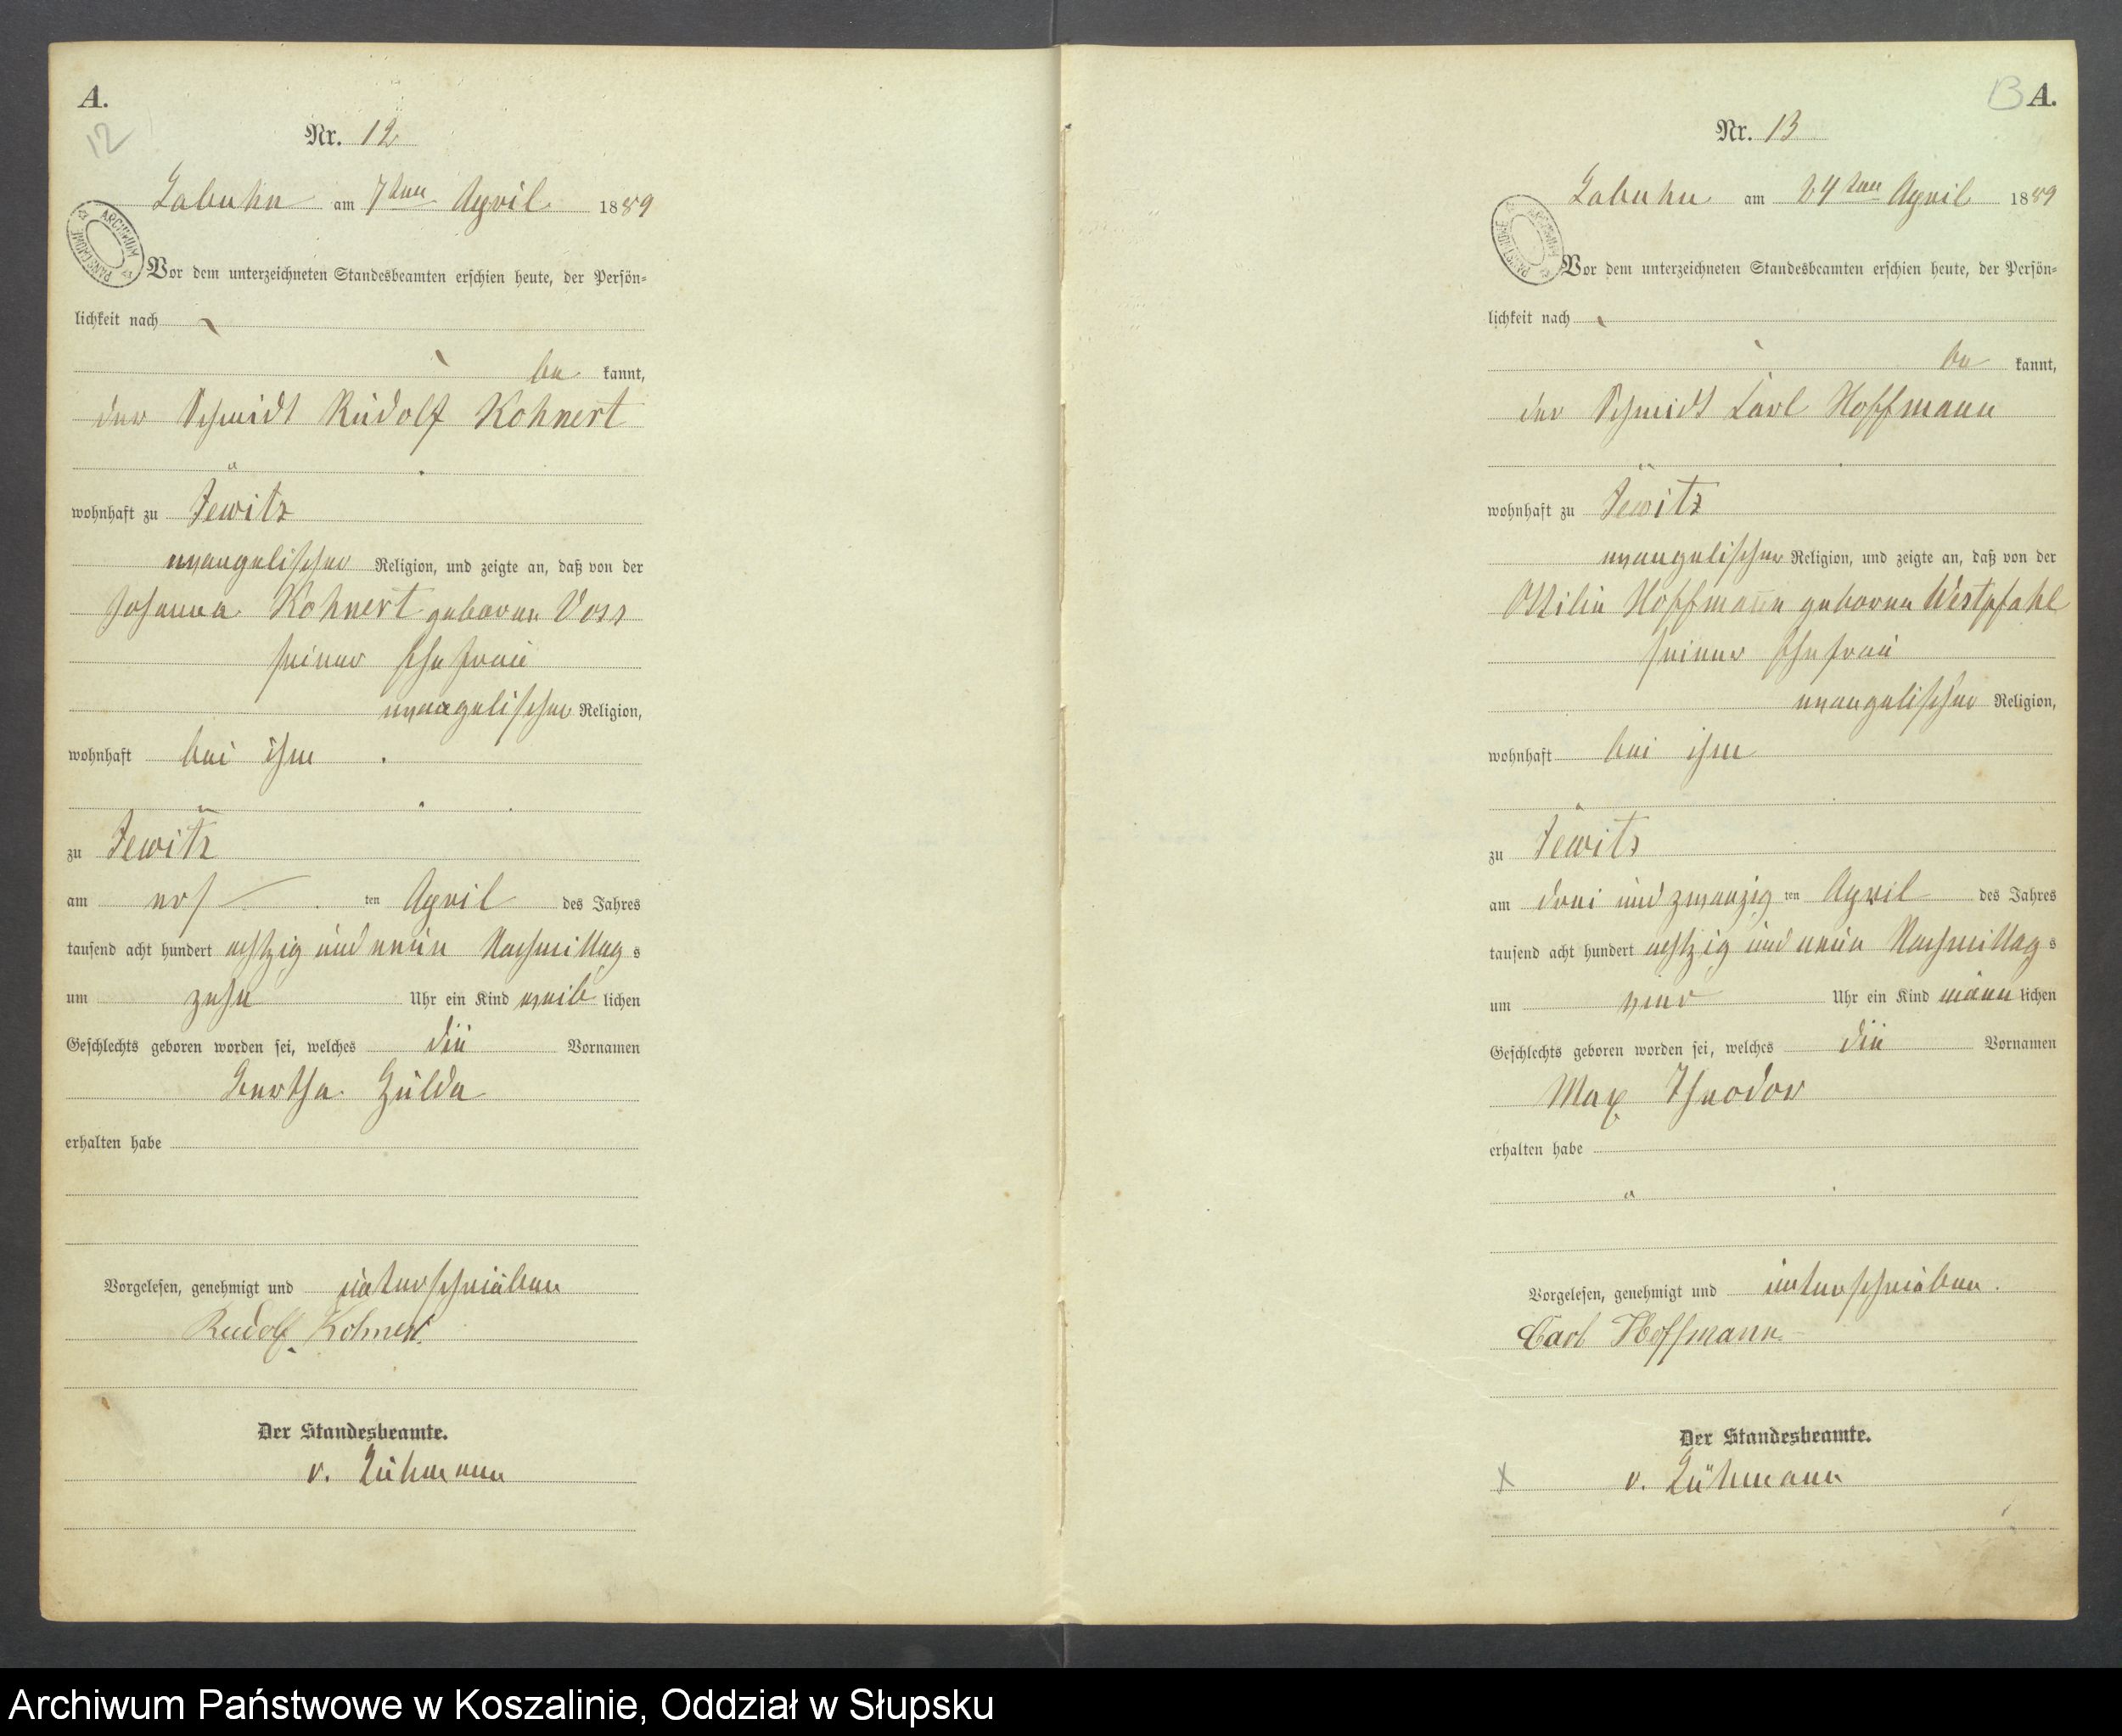 A.
12
Nr. 12
Labuhn am 7ten April 1889
ARCHIWUM PAŃSTWOWE
Vor dem unterzeichneten Standesbeamten erschien heute, der Persön-
lichkeit nach
be kannt,
der Schmidt Rudolf Kohnert
wohnhaft zu Jewitz
evangelischer Religion, und zeigte an, daß von der
Johanna Kohnert geboren Voss
seiner Ehefrau
evangelischer Religion,
wohnhaft bei ihm
zu Jewitz
am ers ten April des Jahres
tausend acht hundert achtzig und neun Nachmittag s
um zehn Uhr ein Kind weib lichen
Geschlechts geboren worden sei, welches die Vornamen
Bertha Hulda
erhalten habe
Vorgelesen, genehmigt und unterschrieben
Rudolf Kohnert.
Der Standesbeamte.
v. Lühmann
13 A.
Nr. 13
Labuhn am 24ten April 1889
Vor dem unterzeichneten Standesbeamten erschien heute, der Persön-
lichkeit nach
be kannt,
der Schmidt Carl Hoffmann
wohnhaft zu Jewitz
evangelischer Religion, und zeigte an, daß von der
Ottilie Hoffmann geborne Westpfahl
seiner Ehefrau
evangelischer Religion,
wohnhaft bei ihm
zu Jewitz
am drei und zwanzig ten April des Jahres
tausend acht hundert achtzig und neun Nachmittag s
um vier Uhr ein Kind männ lichen
Geschlechts geboren worden sei, welches die Vornamen
Max Theodor
erhalten habe
Vorgelesen, genehmigt und unterschrieben.
Carl Hoffmann
Der Standesbeamte.
x v. Lühmann
Archiwum Państwowe w Koszalinie, Oddział w Słupsku